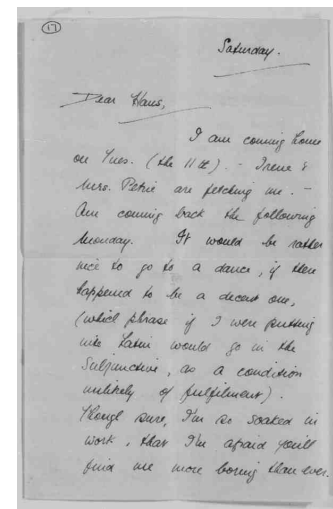 17
Saturday.
Dear Hans,
I am coming home
on Tues. (the 11th). - Irene &
Mrs. Petrie are fetching me. -
Am coming back the following
Monday. It would be rather
nice to go to a dance, if there
happened to be a decent one,
(which phrase if I were putting
into Latin would go in the
Subjunctive, as a condition
unlikely of fulfilment).
Though sure, I'm so soaked in
work, that I'm afraid you'll
find me more boring than ever.